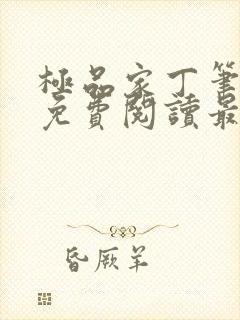 極品家丁筆
免費閱讀最
昏厥羊